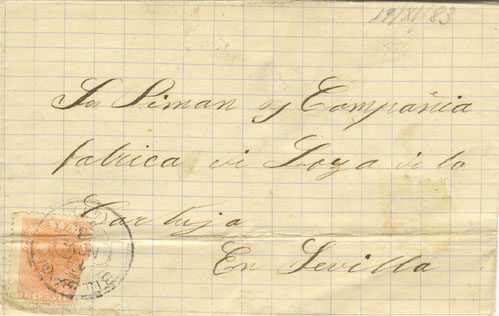 19/XI/83
Sr Piman y Compañia
fabrica de Loza de la
Cartuja
En Sevilla
15 CENT